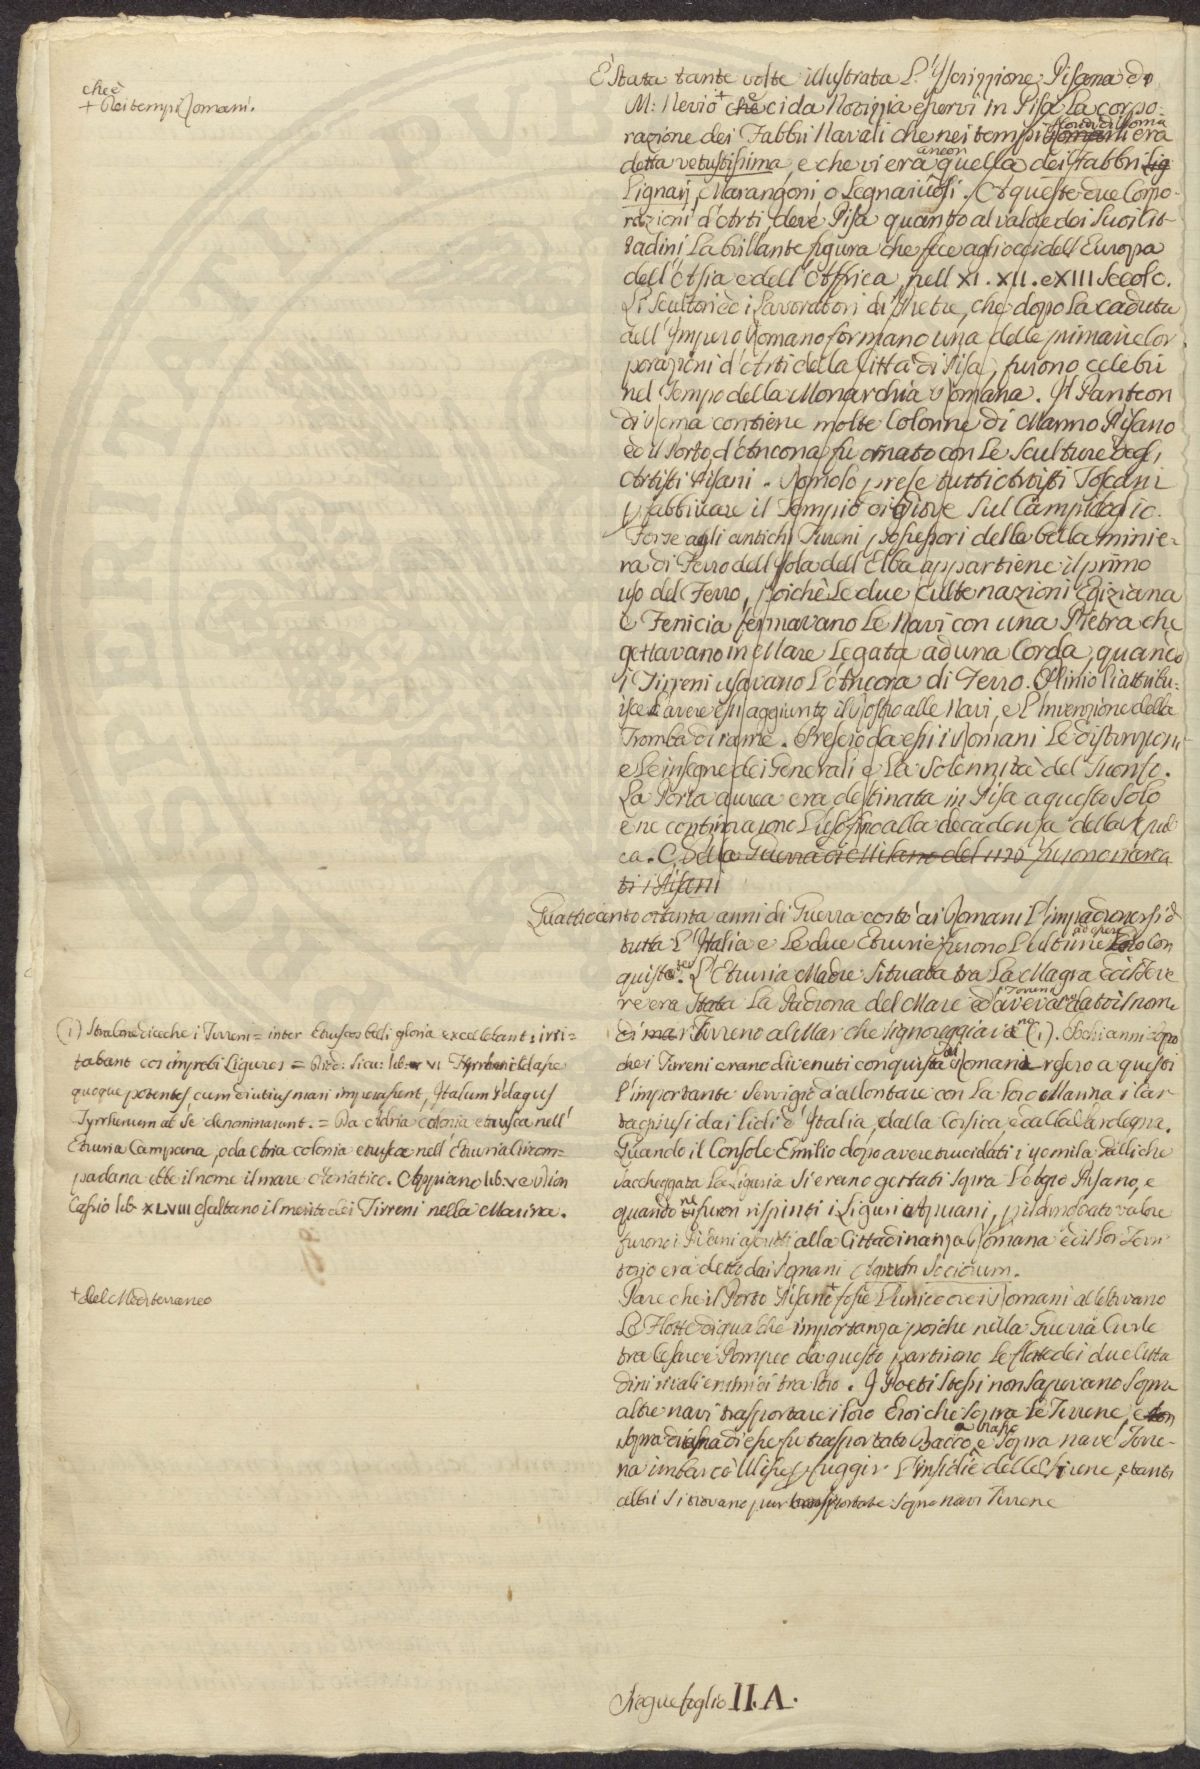 che è
+ Nei tempi Romani.
È Stata tante volte illustrata L'Yscrizzione Pisana di
M: Nevio + che ci da Notizzia esservi in Pisa La corpo-
razione dei Fabbri Navali che nei tempi Romani era
detta vetustissima, e che vi era ancor quella dei Fabbri Lig
Lignarj, Marangoni, o Legnaiuoli. A queste due Corpo-
razioni d'Arti, deve Pisa quanto al valore dei Suoi Cit-
tadini La brillante figura che fece agli occi dell'Europa
dell'Asia e dell'Affrica, nell XI. XII. e XIII Secolo.
Li Scultori ed i Lavoratori di Pietre, che dopo La caduta
dell'Impero Romano formano una delle primarie Cor
porazioni d'Arti della Città di Pisa, furono celebri
nel Tempo della Monarchia Romana. Il Panteon
di Roma contiene molte Colonne di Marmo Pisano
ed il Porto d'Ancona fu ornato con Le Sculture degl'
Artisti Pisani. Romolo prese tutti Artisti Toscani
p fabbricare il Tempio di Giove Sul Campidoglio.
Forse agli antichi Tirreni possessori della bella minie-
ra di Ferro dell'Isola dell'Elba appartiene il primo
uso del Ferro, poichè Le due culte nazioni Egiziana
e Fenicia fermavano Le Navi con una Pietra che
gettavano in Mare Legata ad una Corda, quando
i Tirreni usavano L'Ancora di Ferro. Plinio li attribu-
isce L'avere essi aggiunto il Rostro alle Navi, e L'Invenzione della
Tromba di rame. Presero da essi i Romani Le distinzioni
e Le insegne dei Generali e La Solennità del Trionfo.
La Porta aurea era destinata in Pisa a questo Solo
e ne continuarono L'uso fino alla decadenza della Repub
ca. Della Guerra di Milano del furono
ti i Pisani
Quattrocento ottanta anni di Guerra costò ai Romani L'impadronirsi di
tutta L'Italia e Le due Etrurie furono L'ultime ad essere Loro Con
quistate. L'Etruria Madre Situata tra La Magra ed il Teve
re era Stata La Padrona del Mare ed aveva dato il nome
di mar Tirreno al Mar che signoreggiava (1). Pochi anni dopo
che i Tirreni erano divenuti conquista dei Romani resero a questi
l'importante servigio d'allontare con La loro Marina i Car
taginesi dai lidi d'Italia, dalla Corsica, e dalla Sardegna.
Quando il Console Emilio dopo avere trucidati i
saccheggiata La Liguria Si erano gettati Sopra L'Agro Pisano, e
quando ne furon rispinti i Liguri Apuani,
furono i Pisani ascritti alla Cittadinanza Romana ed il lor Terri
torio era detto dai Romani Agrum Sociorum.
(1) Strabone dice che i Tirreni = inter Etruscos belli gloria excellebant, irri-
tabant eos improbi Ligures = Diod: Sicu: lib. VI Tyrrheni Classe
quoque potentes cum diutius mari imperassent, Italum Pelagus
Tyrrhenum a Se denominarunt. = Da Adria colonia etrusca nell'
Etruria Campana, o da Atria colonia etrusca nell'Etruria Circom-
padana ebbe il nome il mare Adriatico. Appiano lib. V e Dion
Cassio lib. XLVIII esaltano il merito dei Tirreni nella Marina.
+ del Mediterraneo
Pare che il Porto Pisano + fosse L'unico ove i Romani allestivano
Le Flotte di qualche importanza poiche nella Guerra Civile
tra Cesare e Pompeo da questo partirono Le flotte dei due Citta
dini rivali e nemici tra loro. I Poeti Stessi non Sapevano Sopra
altre navi trasportare i loro Eroi che Sopra Le Tirrene, e
Sopra di esse fu trasportato Bacco a Nasso e Sopra nave Tirre-
na imbarcò Ulisse p fuggir L'insidie delle Sirene, e tanti
altri Si trovano pur trasportate Sopra navi Tirrene
Segue foglio II. A.